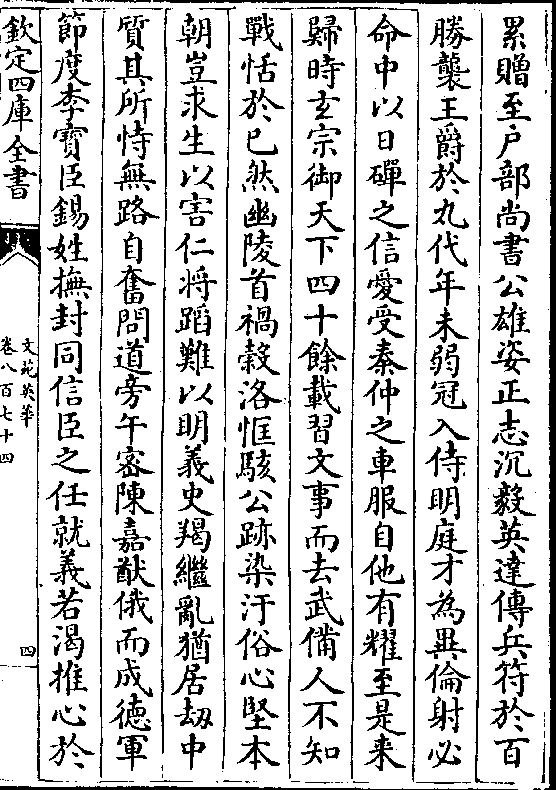 累贈至户部尚書公雄姿正志沉毅英達傳兵符於百
勝襲王爵於九代年未弱冠入侍明庭才為異倫射必
命中以日磾之信愛受秦仲之車服自他有耀至是来
歸時玄宗御天下四十餘載習文事而去武備人不知
戰恬於已然幽陵首禍榖洛恇駭公跡染汙俗心堅本
朝豈求生以害仁将蹈難以明義史羯繼亂猶居刼中
質其所恃無路自奮問道旁午密陳嘉猷俄而成徳軍
節度李寶臣錫姓撫封同信臣之任就義若渴推心於
欽定四庫全書
文苑英華
卷八百七十四
四